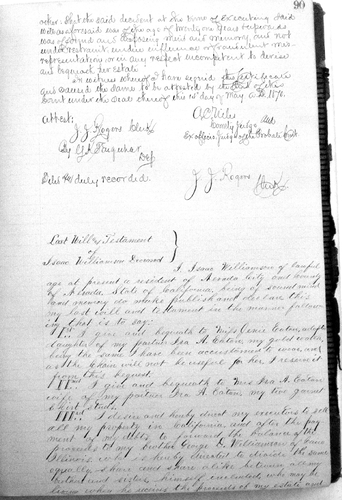 90
other. That the said decedent at the time of executing said
will as aforesaid was of the age of twenty one years & upwards
was of sound and disposing mind and memory and not
under restraint undue influence or fraudulent mis-
representation or in any respect incompetent to devise
and bequeath her estate.
In witness whereof I have signed this certificate
and caused the same to be attested by the Clerk of this
Court under the Seal thereof this 15 day of May A.D. 1876.
Attest:
County Judge
Ex officio Judge of the Probate Court
J. J. Rogers Clerk
By Farquhar
Dep.
duly recorded.
J. J. Rogers Clerk
Last Will & Testament
of
Isaac Williamson Deceased
I, Isaac Williamson of lawful
age at present a resident of Nevada City and County
of Nevada State of California, being of sound mind
and memory do make publish and declare this
my last will and testament in the manner following
that is to say:
Ist. I give and bequeath to Miss Eaton, adopted
daughter of my partner Ira A. Eaton, my gold watch,
being the same I have been accustomed to wear, and
as the chain will not be useful for her I reserve it
from this bequest.
IInd. I give and bequeath to Mrs Ira A. Eaton
wife of my partner Ira A. Eaton, my two garnet
Shirt Studs.
IIIrd. I desire and hereby direct my executors to sell
all my property in California and after the pay-
ment of my debts to forward the balance of the
proceeds to my brother George Williamson of
Illinois who is hereby directed to divide the same
equally share and share alike between all my
brothers and sisters himself included, who may be
living when he receives the proceeds of my estate and